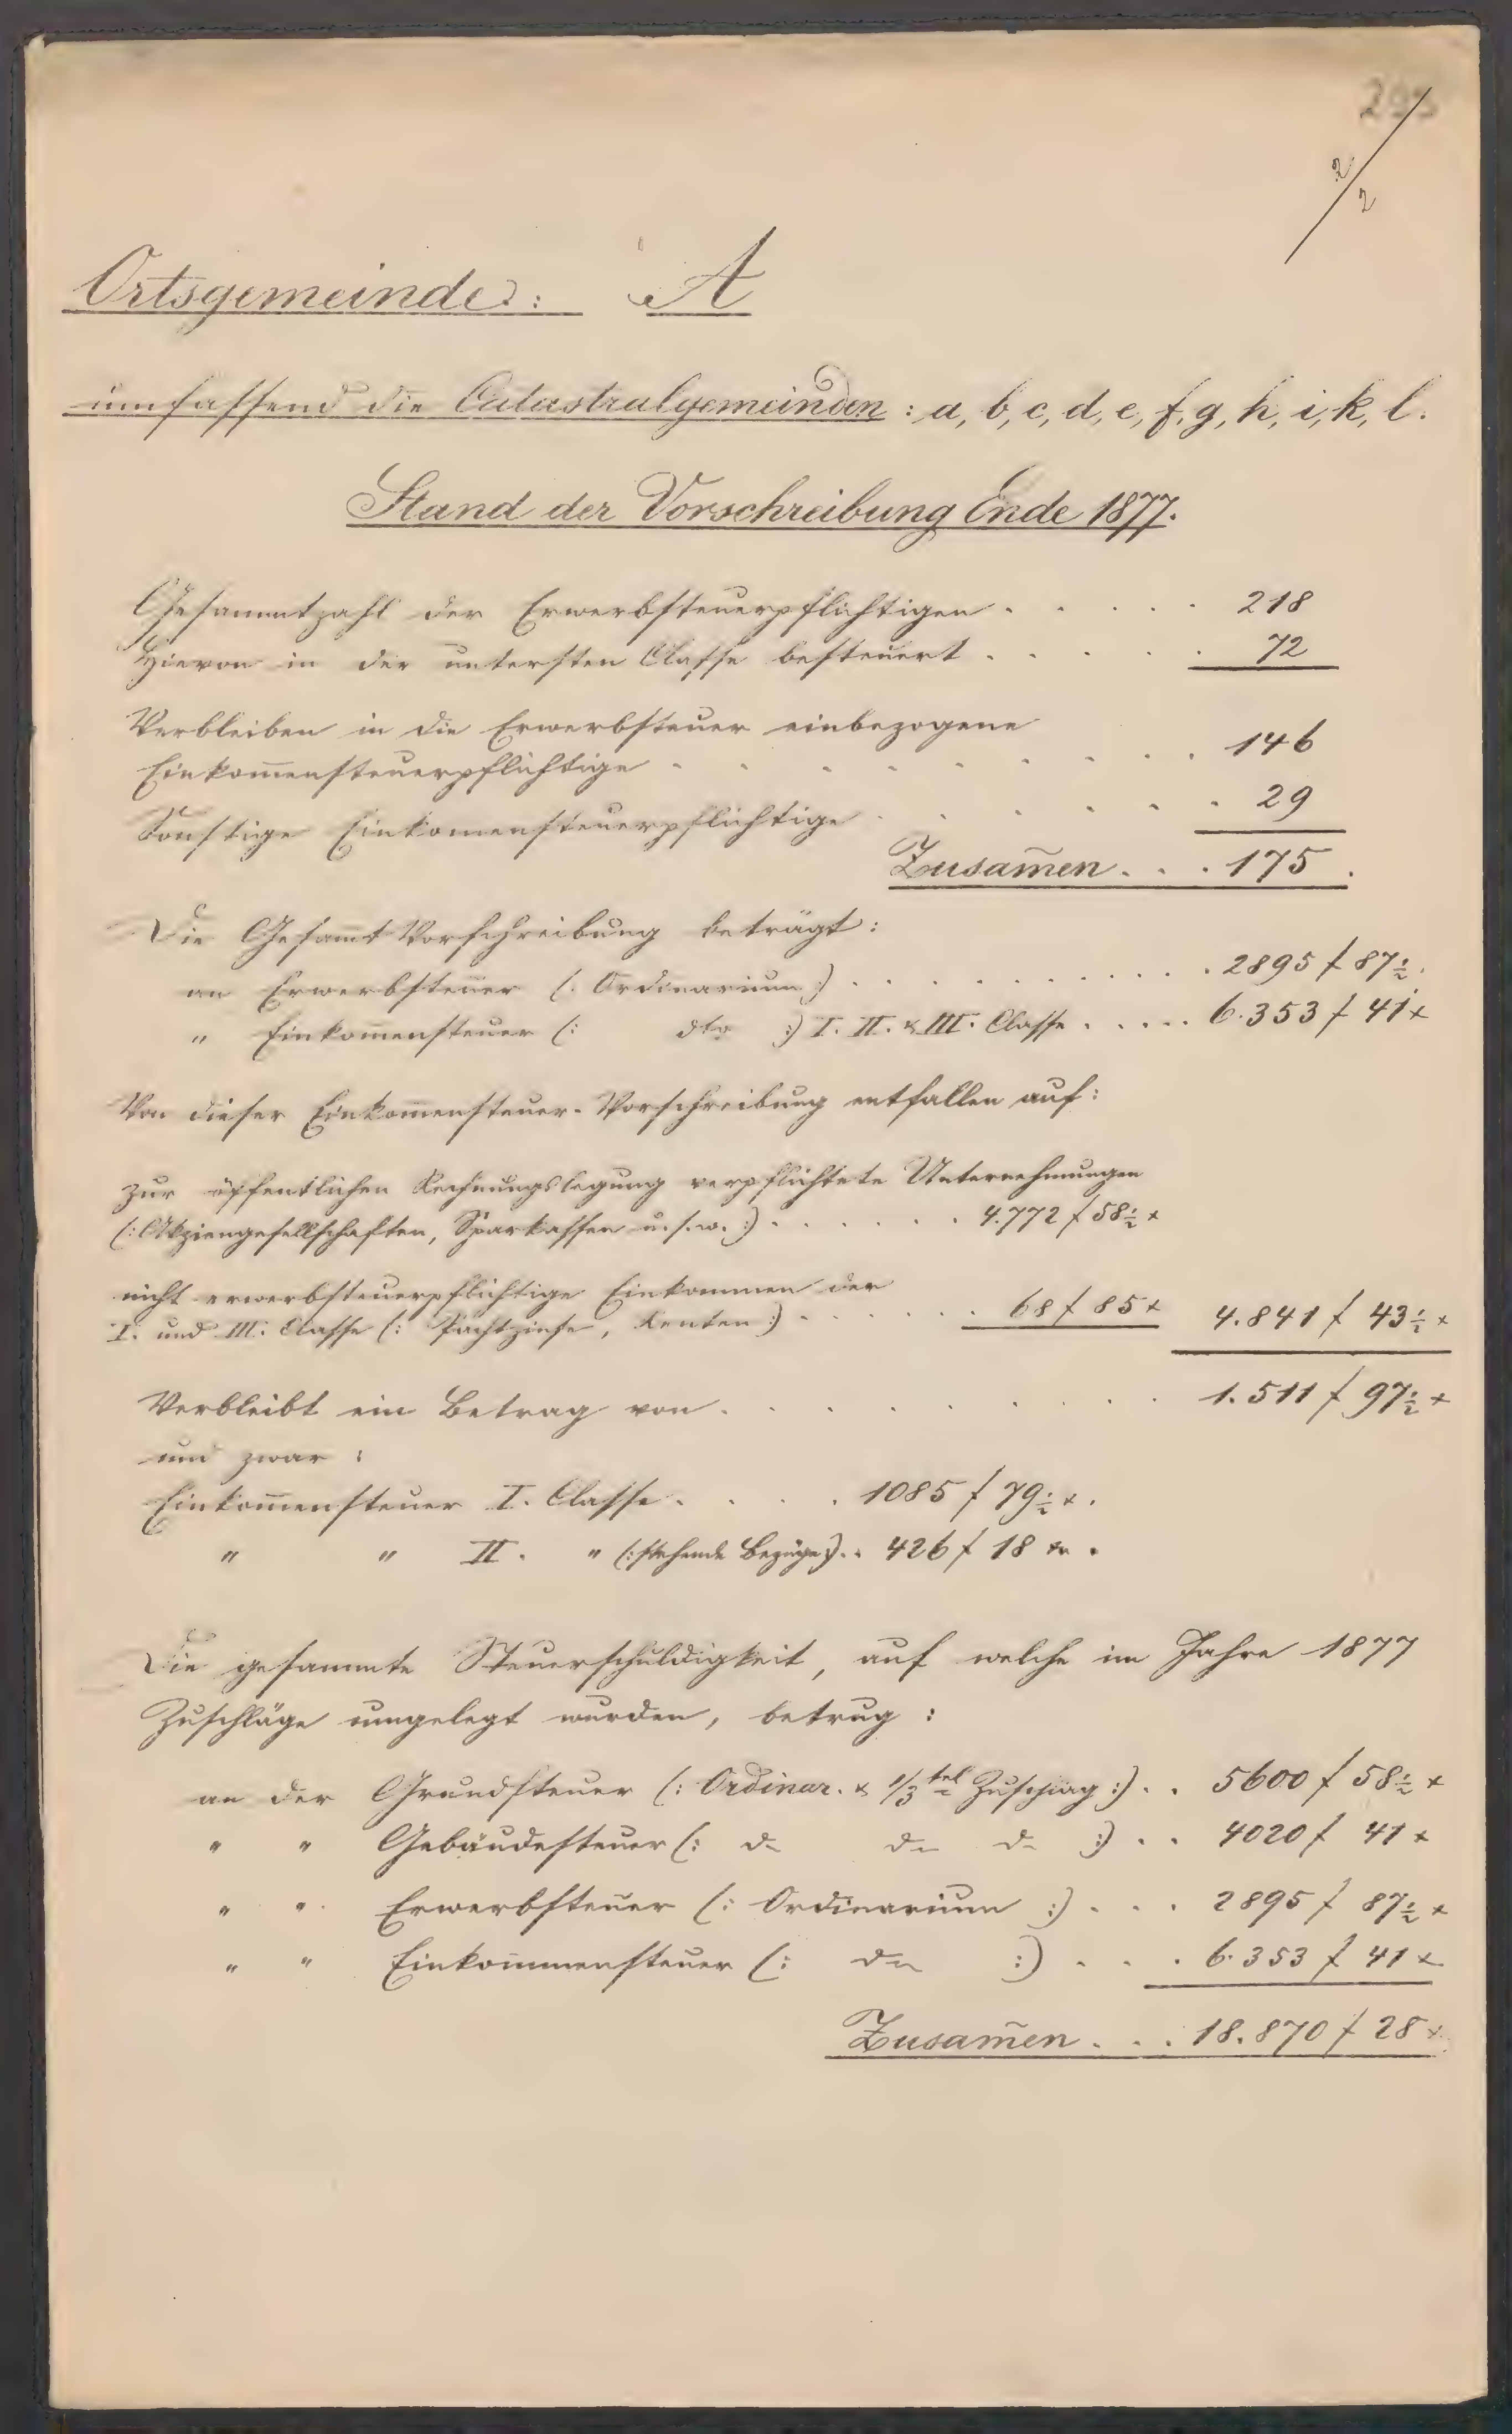 293
2/2
Ortsgemeinde: A
umfassend die Catastralgemeinden: a, b, c, d, e, f, g, h, i, k, l.
Stand der Vorschreibung Ende 1877.
Gesammtzahl der Erwerbsteuerpflichtigen . . . . . 218
Hievon in der untersten Classe besteuert . . . . . 72
Verbleiben in die Erwerbsteuer einbezogene
Einkom̄ensteuerpflichtige . . . . . . . . . 146
Sonstige Einkomensteuerpflichtige . . . . . . 29
Zusam̄en . . . 175.
Die Gesam̄t Vorschreibung beträgt:
an Erwerbsteuer (: Ordinarium :) . . . . . . . . . 2895 f 87½.
" Einkom̄ensteuer (: dto :) I. II. & III. Classe . . . . . 6.353 f 41 x
Von dieser Einkom̄ensteuer-Vorschreibung entfallen auf:
zur öffentlichen Rechnungslegung verpflichtete Unternehmungen
(: Akziengesellschaften, Sparkassen u. s. w. :) . . . . . . . 4.772 f 58½ x
nicht erwerbsteuerpflichtige Einkommen der
I. und III. Classe (: Pachtzinse, Renten :) . . . . . . 68 f 85 x 4.841 f 43½ x
Verbleibt ein Betrag von . . . . . . . . 1.511 f 97½ x
und zwar:
Einkom̄ensteuer I. Classe . . . . 1085 f 79½ x.
" " II. " (: stehende Bezüge :) . . 426 f 18 x.
Die gesammte Steuerschuldigkeit, auf welche im Jahre 1877
Zuschläge umgelegt wurden, betrug:
an der Grundsteuer (: Ordinar. & 1/3tel Zuschlag :) . . 5600 f 58½ x
" " Gebäudesteuer (: do do do :) . . 4020 f 41 x
" " Erwerbsteuer (: Ordinarium :) . . . 2895 f 87½ x
" " Einkommensteuer (: do :) . . . 6.353 f 41 x
Zusam̄en . . . 18.870 f 28 x